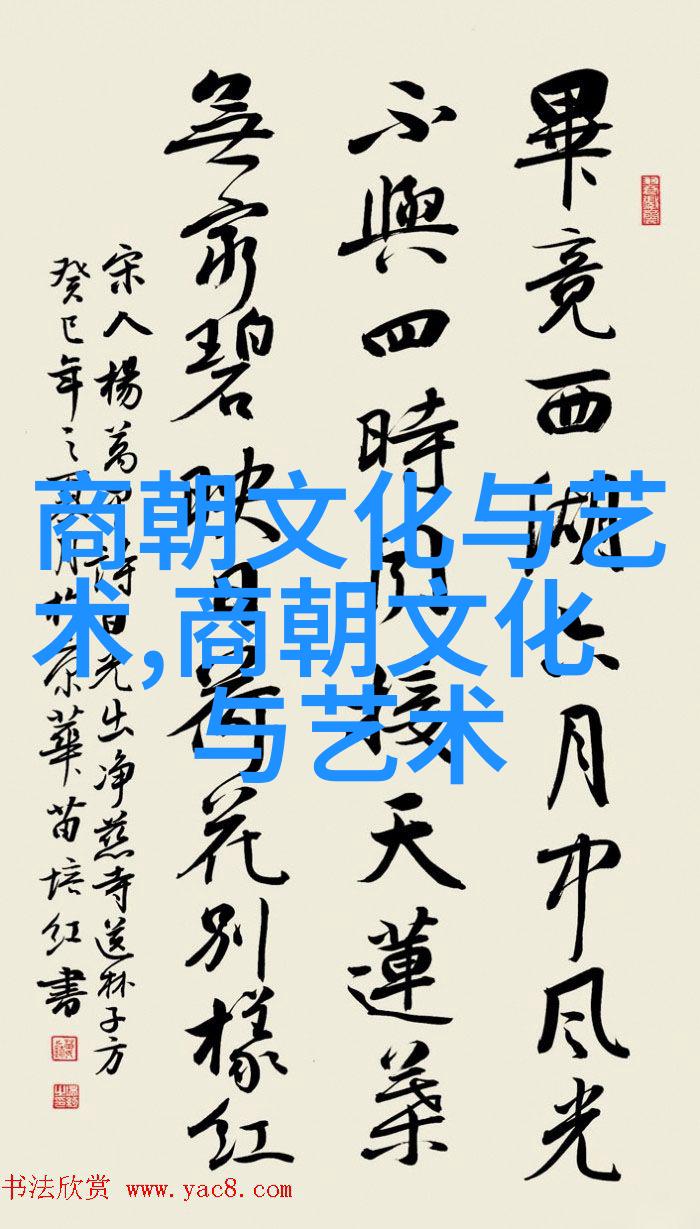 畢竟西湖六月中风光
不與四時同接天蓮葉
無窮碧映日荷花別樣紅
宋人楊萬里詩晓出净慈寺送林子方
癸巳年之夏月於京華苗培紅書
商朝文化与艺
术,商朝文化
与艺术
书法欣赏 www.yac8.com